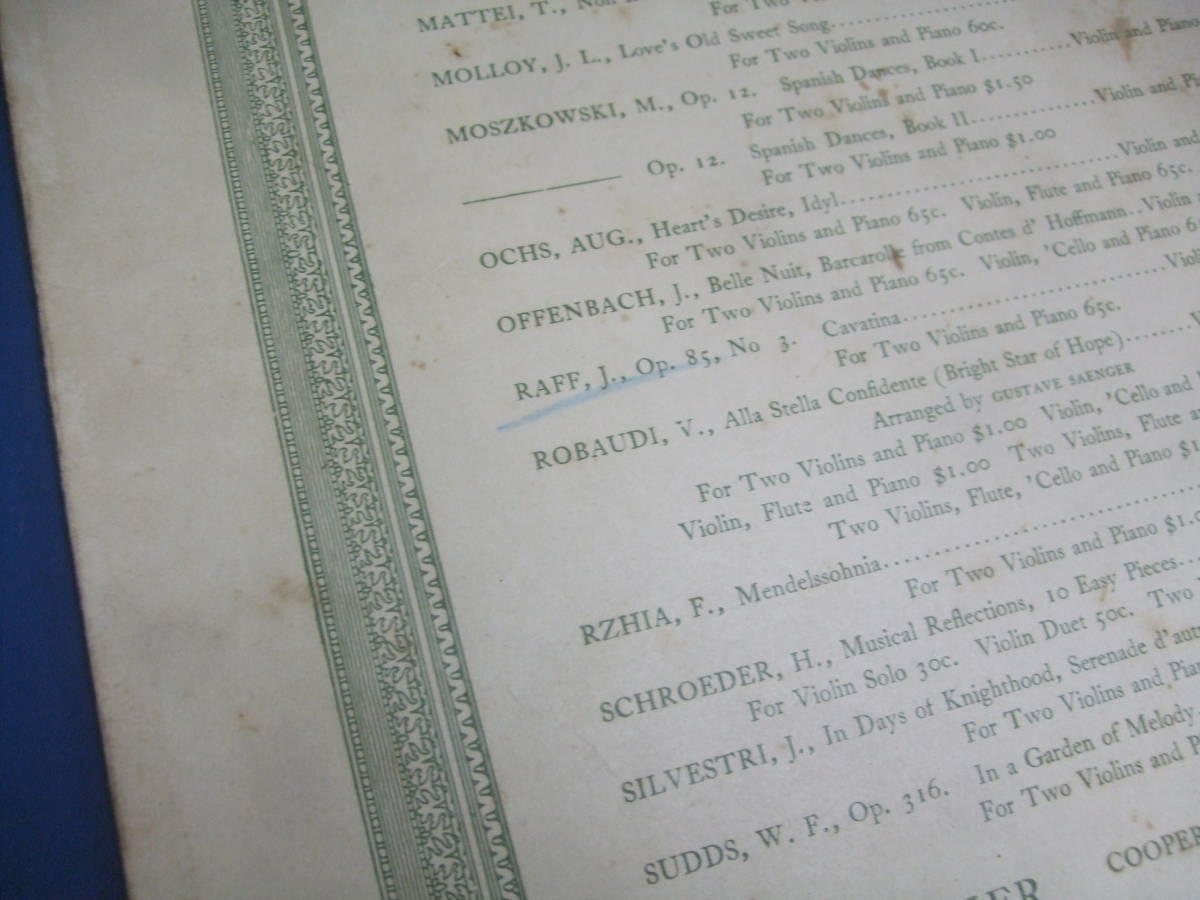 MATTEI, T., Non
For Two
MOLLOY, J. L., Love's Old Sweet Song..........
For Two Violins and Piano 60c.
MOSZKOWSKI, M., Op. 12. Spanish Dances, Book I..........Violin and Piano
For Two Violins and Piano $1.50
Op. 12. Spanish Dances, Book II..........Violin and
For Two Violins and Piano $1.00
OCHS, AUG., Heart's Desire, Idyl..........Violin and
For Two Violins and Piano 65c. Violin, Flute and Piano 65c.
OFFENBACH, J., Belle Nuit, Barcarolle from Contes d' Hoffmann..Violin
For Two Violins and Piano 65c. Violin, 'Cello and Piano
RAFF, J., Op. 85, No 3. Cavatina..........
For Two Violins and Piano 65c.
ROBAUDI, V., Alla Stella Confidente (Bright Star of Hope)..........
Arranged by GUSTAVE SAENGER
For Two Violins and Piano $1.00 Violin, 'Cello and
Violin, Flute and Piano $1.00 Two Violins, Flute
Two Violins, Flute, 'Cello and Piano
RZHIA, F., Mendelssohnia..........
For Two Violins and Piano
SCHROEDER, H., Musical Reflections, 10 Easy Pieces...
For Violin Solo 30c. Violin Duet 50c. Two
SILVESTRI, J., In Days of Knighthood, Serenade
For Two Violins and
SUDDS, W. F., Op. 316. In a Garden of Melody
For Two Violins and
COOPER